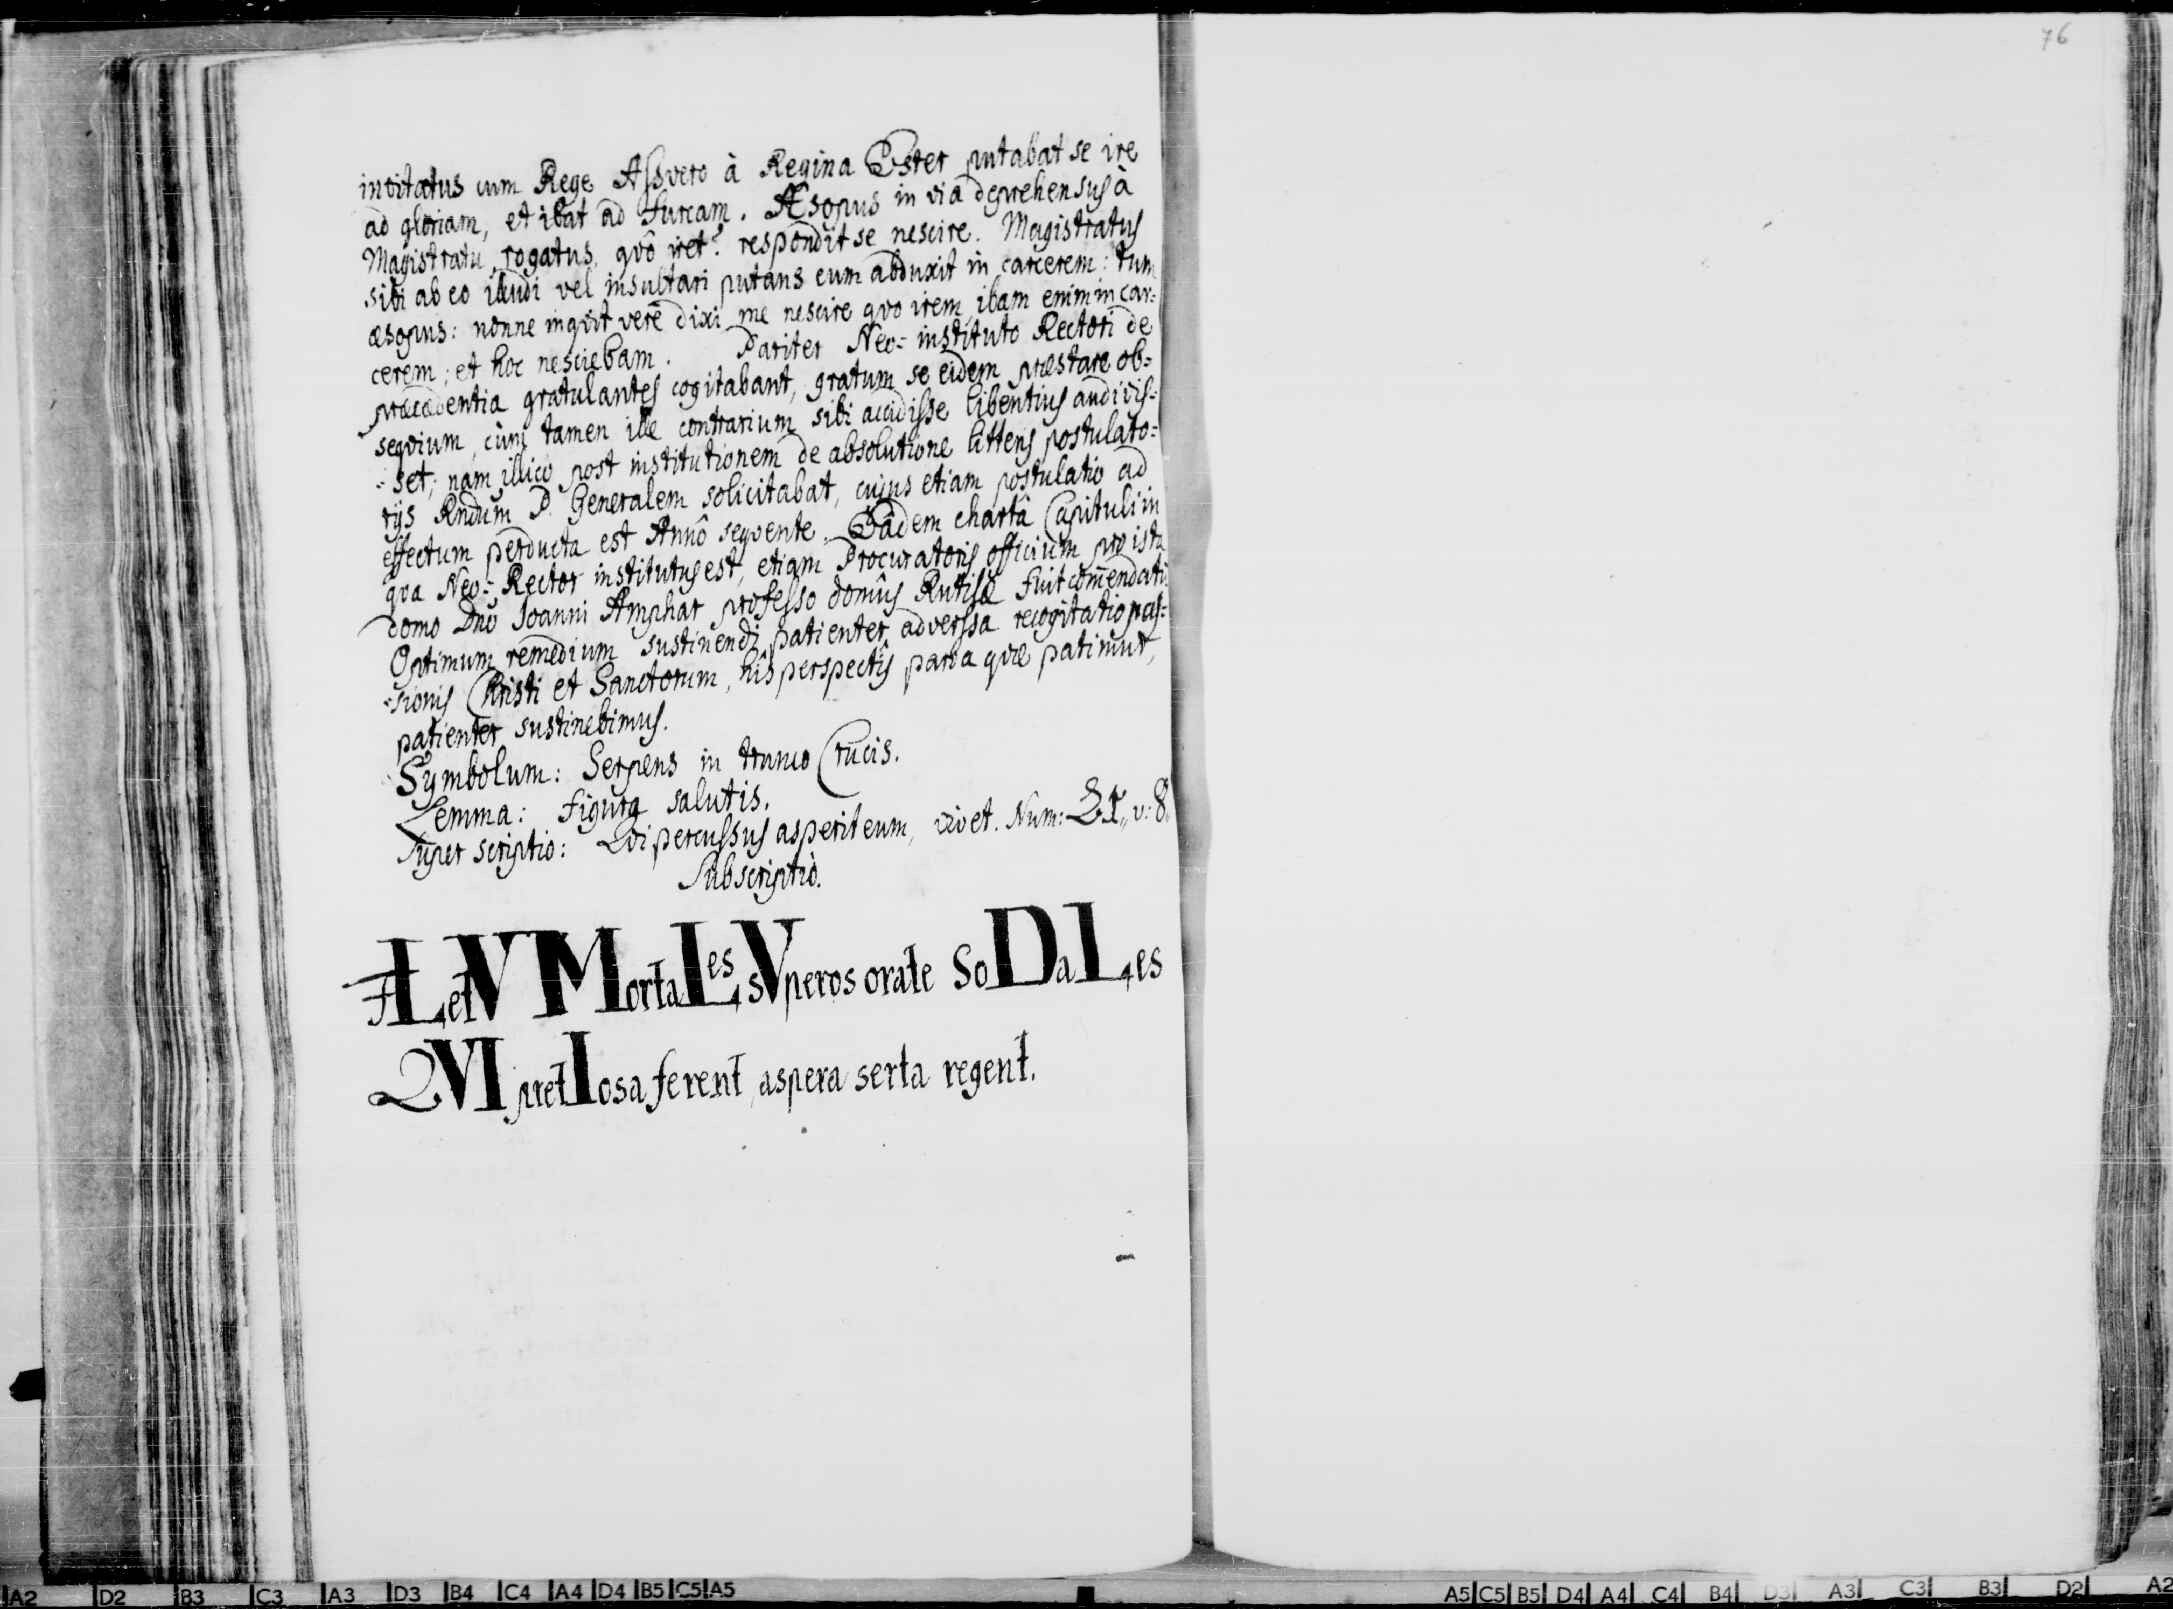 76
invitatus cum Rege Assvero à Regina Ester putabat se ire
ad gloriam, et ibat ad furcam. Æsopus in via deprehensus à
Magistratu, rogatus, qvô iret? respondit se nescire. Magistratus
sibi ab eo illudi vel insultari putans eum abduxit in carcerem: tum
æsopus: nonne inqvit verè dixi me nescire qvo irem, ibam enim in car=
cerem; et hoc nesciebam. Pariter Neo=instituto Rectori de
præcedentia gratulantes cogitabant, gratum se eidem præstare ob=
seqvium, cùm tamen ille contrarium sibi accidisse libentius audivis=
=set; nam illico post institutionem de absolutione litteris postulato=
rijs Rndum P. Generalem solicitabat, cujus etiam postulatio ad
effectum perducta est Annô seqvente. Eâdem chartâ Capituli in
qva Neo=Rector institutus est, etiam Procuratoris officium pro ista
domo Dno Joanni Amphar professo domûs Rutisæ fuit com̄endatū
Optimum remedium sustinendi patienter adverssa recogitatio pas=
=sionis Christi et Sanctorum, his perspectis parva qvæ patimur,
patienter sustinebimus.
Symbolum: Serpens in trunco Crucis.
Lemma: figura salutis.
Super scriptio: Qvi percussus asperit eum, vivet. Num: 21,, v: 8.
Subscriptio.
FLetV MortaLes sVperos orate SoDaLes
QVI pretIosa ferent, aspera serta regent.
A2 D2 B3 C3 A3 D3 B4 C4 A4 D4 B5 C5 A5
A5 C5 B5 D4 A4 C4 B4 D3 A3 C3 B3 D2 A2